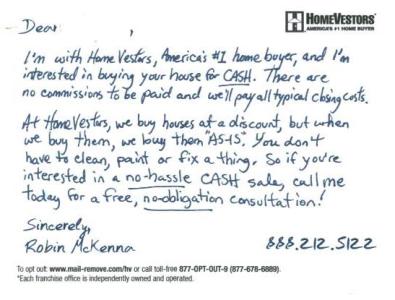 HOMEVESTORS®
AMERICA'S #1 HOME BUYER
Dear ,
I'm with Home Vestors, America's #1 home buyer, and I'm
interested in buying your house for CASH. There are
no commissions to be paid and we'll pay all typical closing costs.
At HomeVestors, we buy houses at a discount, but when
we buy them, we buy them "AS-IS". You don't
have to clean, paint or fix a thing. So if you're
interested in a no-hassle CASH sale, call me
today for a free, no-obligation consultation!
Sincerely,
Robin McKenna
888.212.5122
To opt out: www.mail-remove.com/hv or call toll-free 877-OPT-OUT-9 (877-678-6889).
*Each franchise office is independently owned and operated.